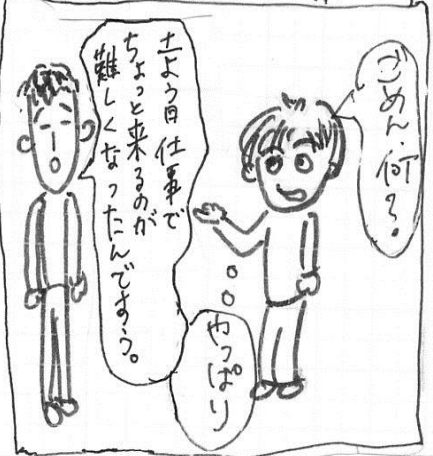 ごめん、何?
土よう日仕事で
ちょっと来るのが
難しくなったんですよう。
やっぱり